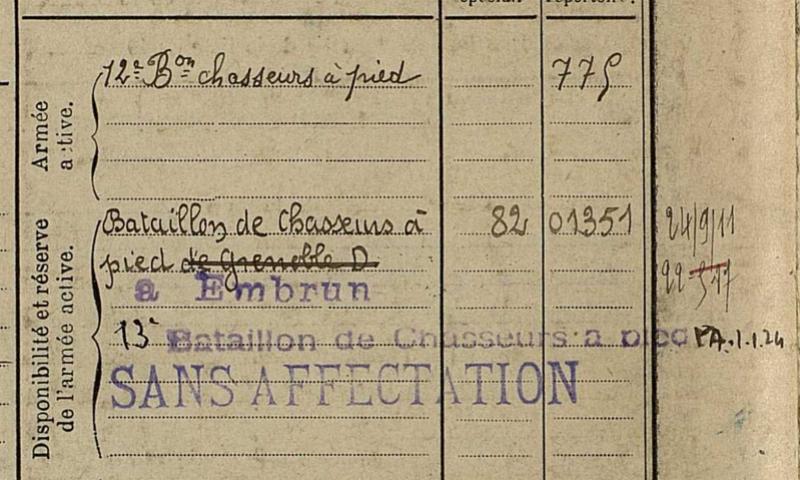 Armée active.
12e Bon chasseurs à pied 775
Disponibilité et réserve de l'armée active.
Bataillon de Chasseurs à 82 01351 24/9/11
pied de Grenoble D
à Embrun
13e Bataillon de Chasseurs à pied PA.1.1.24
SANS AFFECTATION